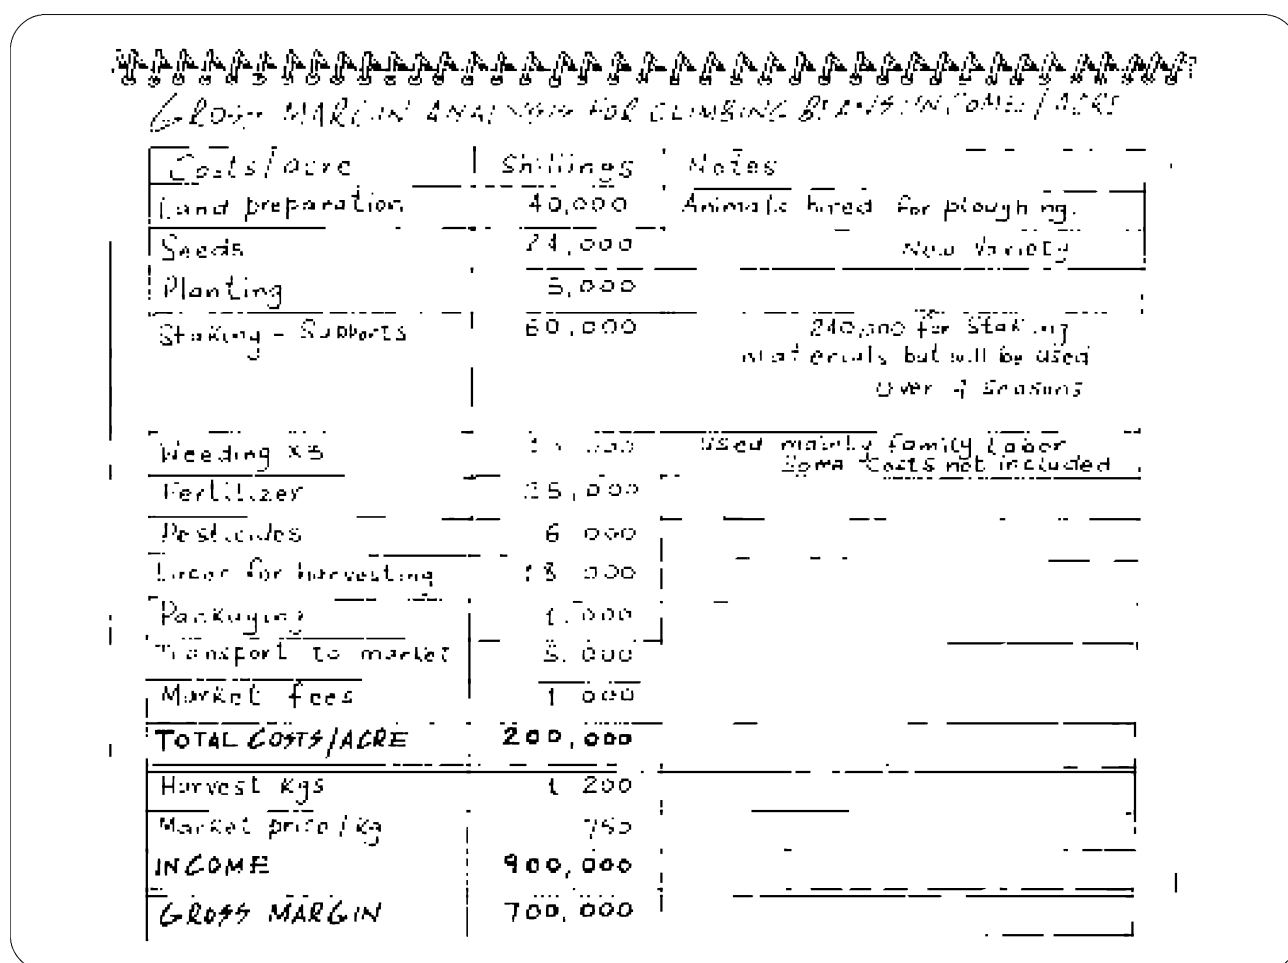 GROSS MARGIN ANALYSIS FOR CLIMBING BEANS INCOMES/ACRE
Costs/acre Shillings Notes
Land preparation 40,000 Animals hired for ploughing.
Seeds 24,000 New Variety
Planting 5,000
Staking - Supports 60,000 240,000 for Staking
materials but will be used
Over 4 Seasons
Weeding x3 Used mainly family Labor
Some Costs not included
Fertilizer
Pesticides 6 000
Labor for harvesting 18 000
Packaging 1,000
Transport to market 5,000
Market fees 1 000
TOTAL COSTS/ACRE 200,000
Harvest Kgs 1 200
Market price/Kg 750
INCOME 900,000
GROSS MARGIN 700,000